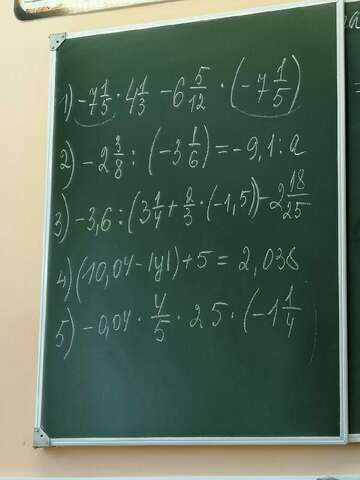 1) -7 1/5 · 4 1/3 - 6 5/12 · (-7 1/5)
2) -2 3/8 : (-3 1/6) = -9,1 : a
3) -3,6 : (3 1/4 + 2/3 · (-1,5)) - 2 18/25
4) (10,04 - |y|) + 5 = 2,038
5) -0,04 · 4/5 · 25 · (-1 1/4)